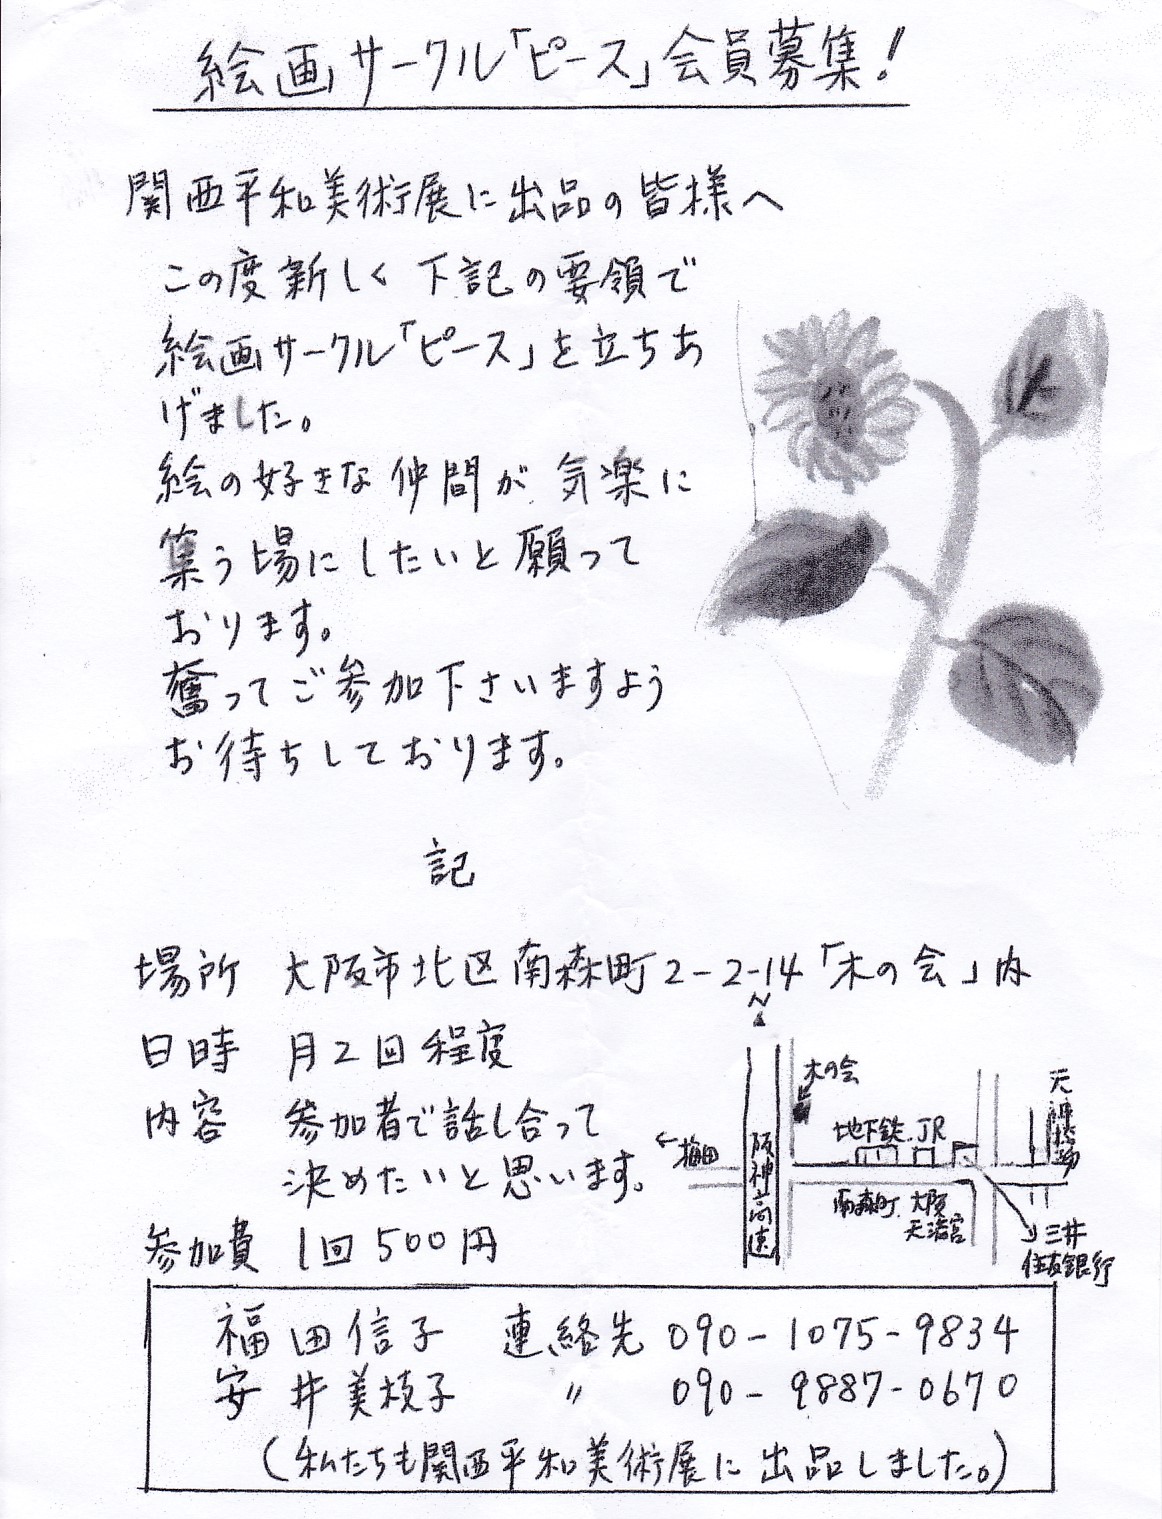 絵画サークル「ピース」会員募集!
関西平和美術展に出品の皆様へ
この度新しく下記の要領で
絵画サークル「ピース」を立ちあ
げました。
絵の好きな仲間が気楽に
集う場にしたいと願って
おります。
奮ってご参加下さいますよう
お待ちしております。
記
場所 大阪市北区南森町2-2-14「木の会」内
日時 月2回程度
内容 参加者で話し合って
決めたいと思います。
参加費 1回500円
N
木の会
天神橋筋
地下鉄 JR
←梅田
阪神高速
南森町 大阪
天満宮
三井
住友銀行
福田信子 連絡先 090-1075-9834
安井美枝子 〃 090-9887-0670
(私たちも関西平和美術展に出品しました。)